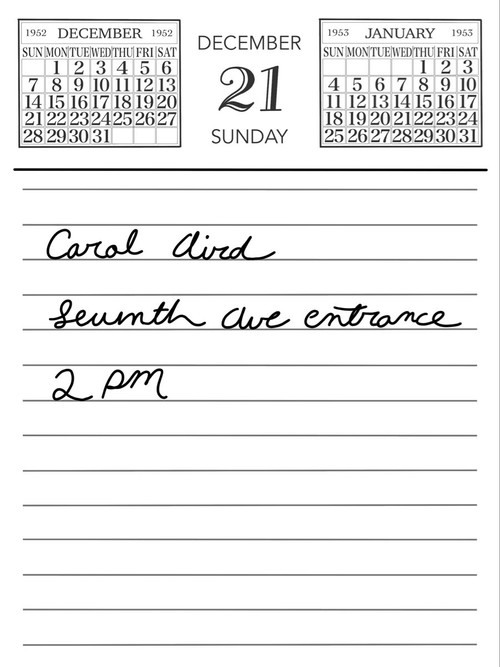 1952 DECEMBER 1952
SUN MON TUE WED THU FRI SAT
1 2 3 4 5 6
7 8 9 10 11 12 13
14 15 16 17 18 19 20
21 22 23 24 25 26 27
28 29 30 31
DECEMBER
21
SUNDAY
1953 JANUARY 1953
SUN MON TUE WED THU FRI SAT
1 2 3
4 5 6 7 8 9 10
11 12 13 14 15 16 17
18 19 20 21 22 23 24
25 26 27 28 29 30 31
Carol Aird
Seventh Ave entrance
2 PM